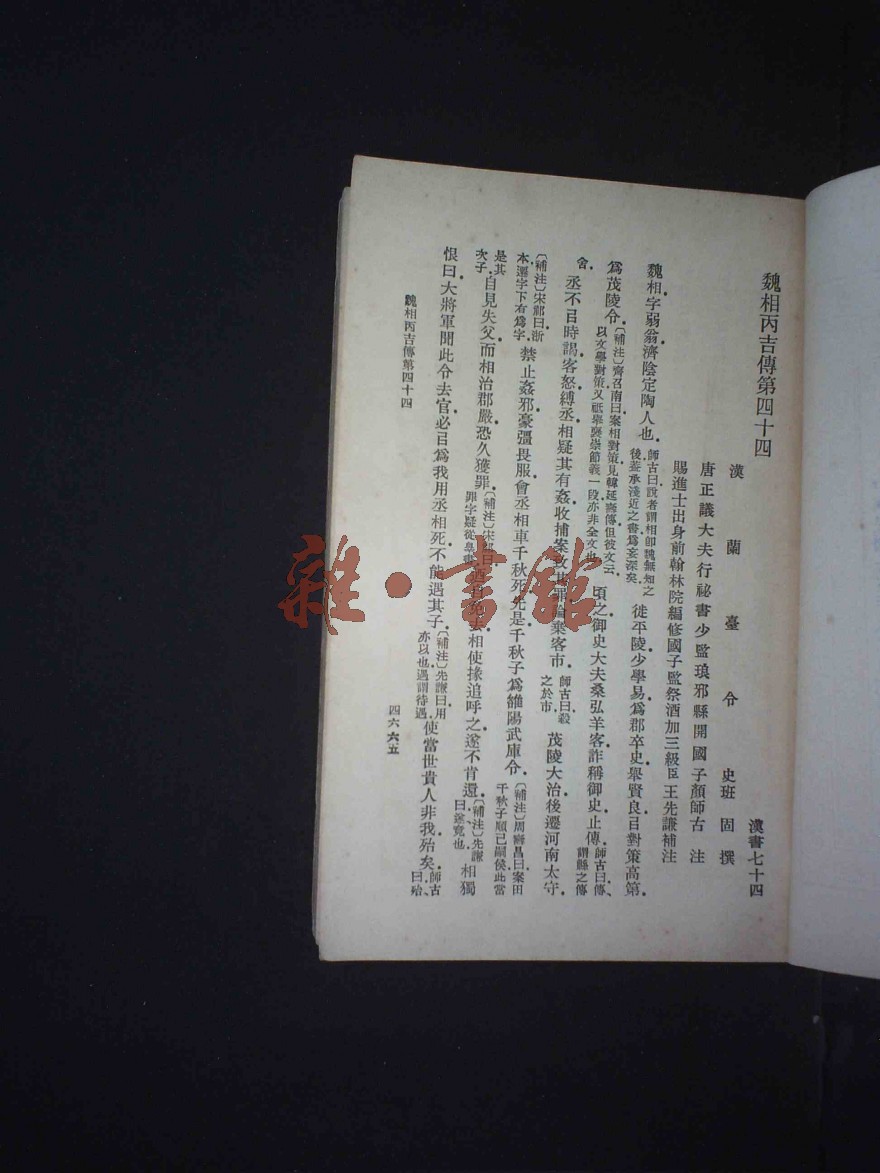 魏相丙吉傳第四十四　漢書七十四
漢蘭臺令史班固撰
唐正議大夫行祕書少監琅邪縣開國子顏師古注
賜進士出身前翰林院編修國子監祭酒加三級臣王先謙補注
魏相字弱翁濟陰定陶人也．師古曰說者謂相卽魏無知之後蓋承淺近之書爲妄深矣．徙平陵少學易爲郡卒史舉賢良㠯對策高第．
爲茂陵令．〔補注〕齊召南曰案相對策見韓延壽傳但彼文云以文學對策又祗舉褒崇節義一段亦非全文也．頃之御史大夫桑弘羊客詐稱御史止傳．師古曰傳謂縣之傳
舍．丞不㠯時謁客怒縛丞相疑其有姦收捕案致其罪論棄客市．師古曰殺之於市．茂陵大治後遷河南太守．
〔補注〕宋祁曰浙本遷字下有爲字．禁止姦邪豪彊畏服會丞相車千秋死先是千秋子爲雒陽武庫令．〔補注〕周壽昌曰案田千秋子順已嗣侯此當
是其次子．自見失父而相治郡嚴恐久獲罪．〔補注〕宋祁曰罪字疑從辠去相使掾追呼之遂不肯還．〔補注〕先謙曰遂竟也．相獨
恨曰大將軍聞此令去官必㠯爲我用丞相死不能遇其子．〔補注〕先謙曰用亦以也遇謂待遇．使當世貴人非我殆矣．師古曰殆、
魏相丙吉傳第四十四
四六六五
雜·書館